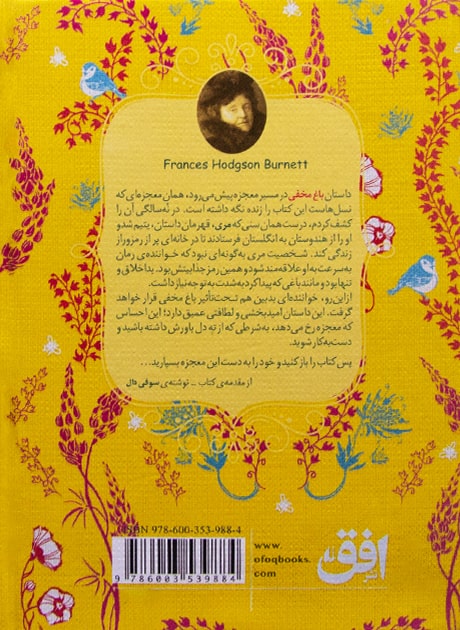 Frances Hodgson Burnett
داستان باغ مخفی در مسیر معجزه پیش می‌رود، همان معجزه‌ای که
نسل‌هاست این کتاب را زنده نگه داشته است. در نُه‌سالگی آن را
کشف کردم، درست همان سنی که مری، قهرمان داستان، یتیم شد و
او را از هندوستان به انگلستان فرستادند تا در خانه‌ای پر از رمزوراز
زندگی کند. شخصیت مری به‌گونه‌ای نبود که خواننده‌ی رمان
به‌سرعت به او علاقه‌مند شود و همین رمز جذابیتش بود. بداخلاق و
تنها بود و مانند باغی که پیدا کرد به‌شدت به توجه نیاز داشت.
از این‌رو، خواننده‌ای بدبین هم تحت‌تأثیر باغ مخفی قرار خواهد
گرفت. این داستان امیدبخشی و لطافتی عمیق دارد؛ این احساس
که معجزه رخ می‌دهد، به‌شرطی که از تهِ دل باورش داشته باشید و
دست‌به‌کار شوید.
پس کتاب را باز کنید و خود را به دست این معجزه بسپارید...
از مقدمه‌ی کتاب _ نوشته‌ی سوفی دال
ISBN 978-600-353-988-4
9 786003 539884
www.
ofoqbooks.
com
افق